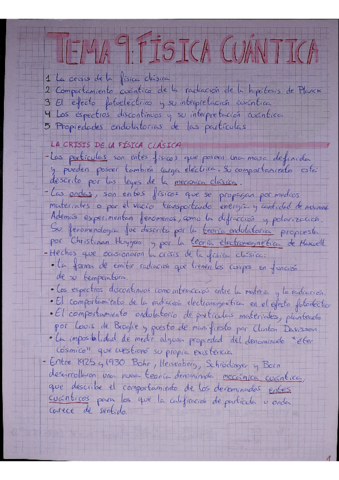 TEMA 9: FÍSICA CUÁNTICA
1 La crisis de la física clásica
2 Comportamiento cuántico de la radiación de la hipótesis de Planck
3 El efecto fotoeléctrico y su interpretación cuántica
4 Los espectros discontinuos y su interpretación cuántica
5 Propiedades ondulatorias de las partículas
LA CRISIS DE LA FÍSICA CLÁSICA
- Las partículas son entes físicos que poseen una masa definida
y pueden poseer también carga eléctrica; su comportamiento está
descrito por las leyes de la mecánica clásica.
- Las ondas, son entes físicos que se propagan por medios
materiales o por el vacío transportando energía y cantidad de movimiento
Además experimentan fenómenos, como la difracción y polarización.
Su fenomenología fue descrita por la teoría ondulatoria propuesta
por Christiaan Huygens y por la teoría electromagnética de Maxwell
- Hechos que ocasionaron la crisis de la física clásica:
• La forma de emitir radiación que tienen los cuerpos en función
de su temperatura.
• Los espectros discontinuos como interacción entre la materia y la radiación.
• El comportamiento de la radiación electromagnética en el efecto fotoeléctrico
• El comportamiento ondulatorio de partículas materiales, planteado
por Louis de Broglie y puesto de manifiesto por Clinton Davisson.
• La imposibilidad de medir alguna propiedad del denominado "éter
cósmico" que cuestionó su propia existencia.
- Entre 1925 y 1930 Bohr, Heisenberg, Schrödinger y Born
desarrollaron una nueva teoría denominada mecánica cuántica,
que describe el comportamiento de los denominados entes
cuánticos para los que la calificación de partícula u onda
carece de sentido.
1